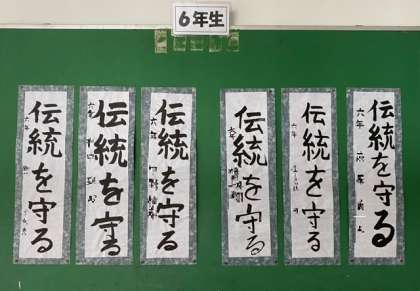 6年生
伝統を守る
六年
伝統を守る
六年
伝統を守る
六年
伝統を守る
六年
伝統を守る
六年
伝統を守る
六年